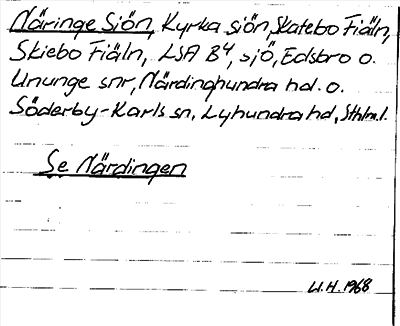 Näringe Sjön, Kyrka sjön, Skatebo Fiäln,
Skiebo Fiäln, LSA B4, sjö, Edsbro o.
Ununge snr, Närdinghundra hd. o.
Söderby-Karls sn, Lyhundra hd, Sthlm. l.
Se Närdingen
U.H. 1968